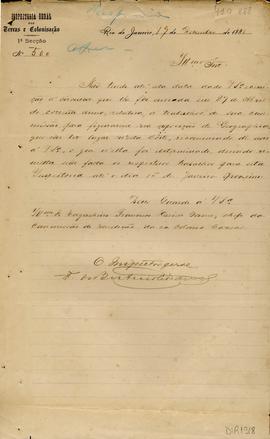 INSPECTORIA GERAL
DAS
Terras e Colonisação
1ª Secção
Nº
Rio de Janeiro, 17 de Dezembro de 188
Illmo Snr.
Não tendo até esta data dado VSª
a circular que lhe foi enviada em 27 de Abril
do corrente anno, relativa a trabalhos de sua com-
missão para figurarem na exposição de Geographia
que vai ter lugar nesta Côrte, recommendo de novo
a VSª o que então foi determinado, devendo re-
metter sem falta os respectivos trabalhos para esta
Inspectoria até o dia 15 de Janeiro proximo.
Deus Guarde a VSª
Illmo Sr. Engenheiro Francisco
Commissão de medição da ex Colonia Caxias.
O Inspector geral
DIR1918